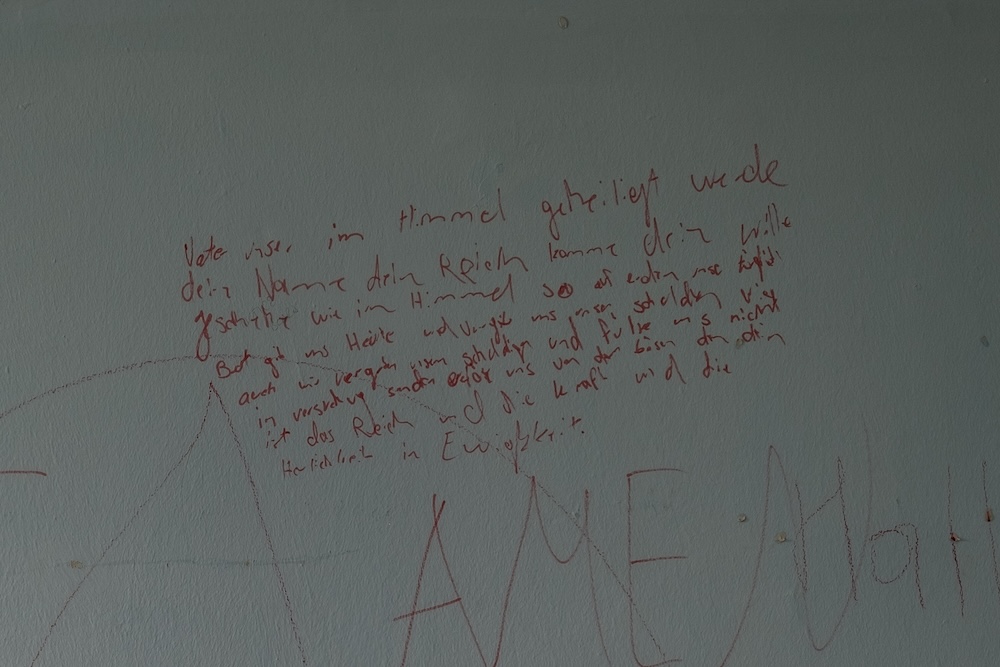 Vater unser im Himmel geheiliegt werde
dein Name dein Reich komme dein wille
geschehe wie im Himmel so auf erden unse täglich
Brot gib uns Heute und vergib uns unser schulden wie
auch wir vergeben unsern schuldigen und führe uns nicht
in versuchung sondern erlöse uns von den bösen den dein
ist das Reich und die kraft und die
Herlichkeit in Ewigkeit.
AMEN